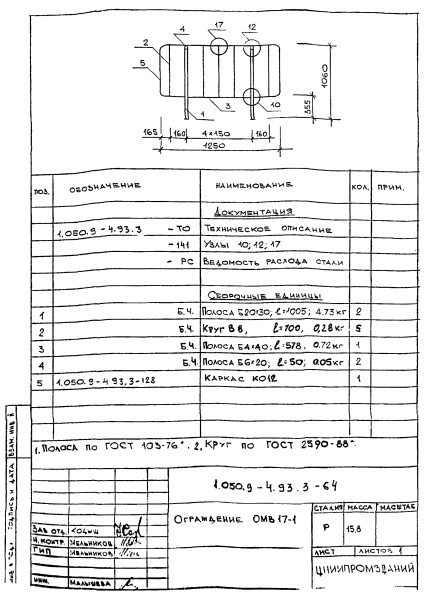 17
12
4
2
5
1060
355
1
3
10
165 160 4×150 160
1250
ПОЗ. ОБОЗНАЧЕНИЕ НАИМЕНОВАНИЕ КОЛ. ПРИМ.
ДОКУМЕНТАЦИЯ
1.050.9-4.93.3 -ТО ТЕХНИЧЕСКОЕ ОПИСАНИЕ
-141 УЗЛЫ 10; 12; 17
-РС ВЕДОМОСТЬ РАСХОДА СТАЛИ
СБОРОЧНЫЕ ЕДИНИЦЫ
1 Б.Ч. ПОЛОСА Б20×30; ℓ=1005; 4.73 кг 2
2 Б.Ч. КРУГ В 8, ℓ=700, 0,28 кг 5
3 Б.Ч. ПОЛОСА Б4×40; ℓ=578, 0.72 кг 1
4 Б.Ч. ПОЛОСА Б6×20; ℓ=50; 0.05 кг 2
5 1.050.9-4 93.3-128 КАРКАС КО12 1
1. ПОЛОСА ПО ГОСТ 103-76*. 2. КРУГ ПО ГОСТ 2590-88*.
1.050.9-4 93.3-64
ОГРАЖДЕНИЕ ОМВ 17-1
СТАДИЯ МАССА МАСШТАБ
Р 15,8
ЛИСТ ЛИСТОВ 1
ЦНИИПРОМЗДАНИЙ
ЗАВ ОТД. ХОДЫШ
Н. КОНТР. МЕЛЬНИКОВ
ГИП МЕЛЬНИКОВ
ИНЖ. МАЛЫШЕВА
ПОДПИСЬ И ДАТА
ВЗАМ. ИНВ. №